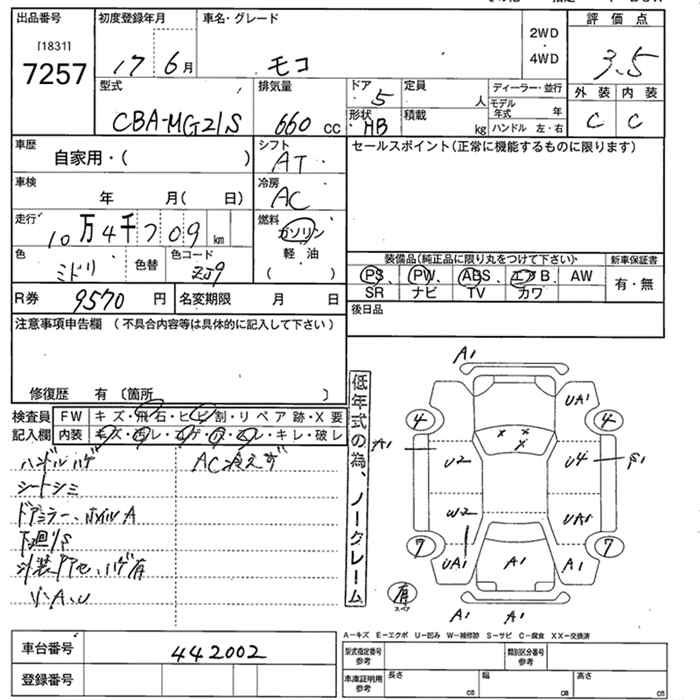 出品番号 初度登録年月 車名・グレード 評価点
[1831]
7257
17 6月 モコ 2WD
・
4WD 3.5
型式 排気量 ドア 定員 ディーラー・並行 外装 内装
CBA-MG21S 660 cc 5 人 モデル年式 年 C C
形状 積載
HB kg ハンドル 左・右
車歴 シフト セールスポイント(正常に機能するものに限ります)
自家用・( ) AT
車検 冷房
年 月( 日) AC
走行 燃料
10万4千709km ガソリン
色 色替 色コード 軽油
ミドリ ZJ9 ( )
装備品(純正品に限り丸をつけて下さい) 新車保証書
PS PW ABS エアB AW 有・無
SR ナビ TV カワ
R券 9570円 名変期限 月 日 後日品
注意事項申告欄(不具合内容等は具体的に記入して下さい)
修復歴 有〔箇所 〕
検査員 FW キズ・飛石・ヒビ割・リペア跡・X要
記入欄 内装 キズ・汚レ・コゲ・穴・スレ・キレ・破レ
ハンドルハゲ AC冷えず
シートシミ
ドアミラー、ホイルA
下廻りS
外装ドアセ、ハゲ有
小A、U
低年式の為、ノークレーム
A1
UA1
4 4
A1 U2 U4 A1
W2 UA5
7 7
UA1 A1 A1
有
A1 A1
A−キズ E−エクボ U−凹み W−補修跡 S−サビ C−腐食 XX−交換済
車台番号 442002
登録番号
型式指定番号 参考 類別区分番号 参考
車庫証明用 参考 長さ cm 幅 cm 高さ cm